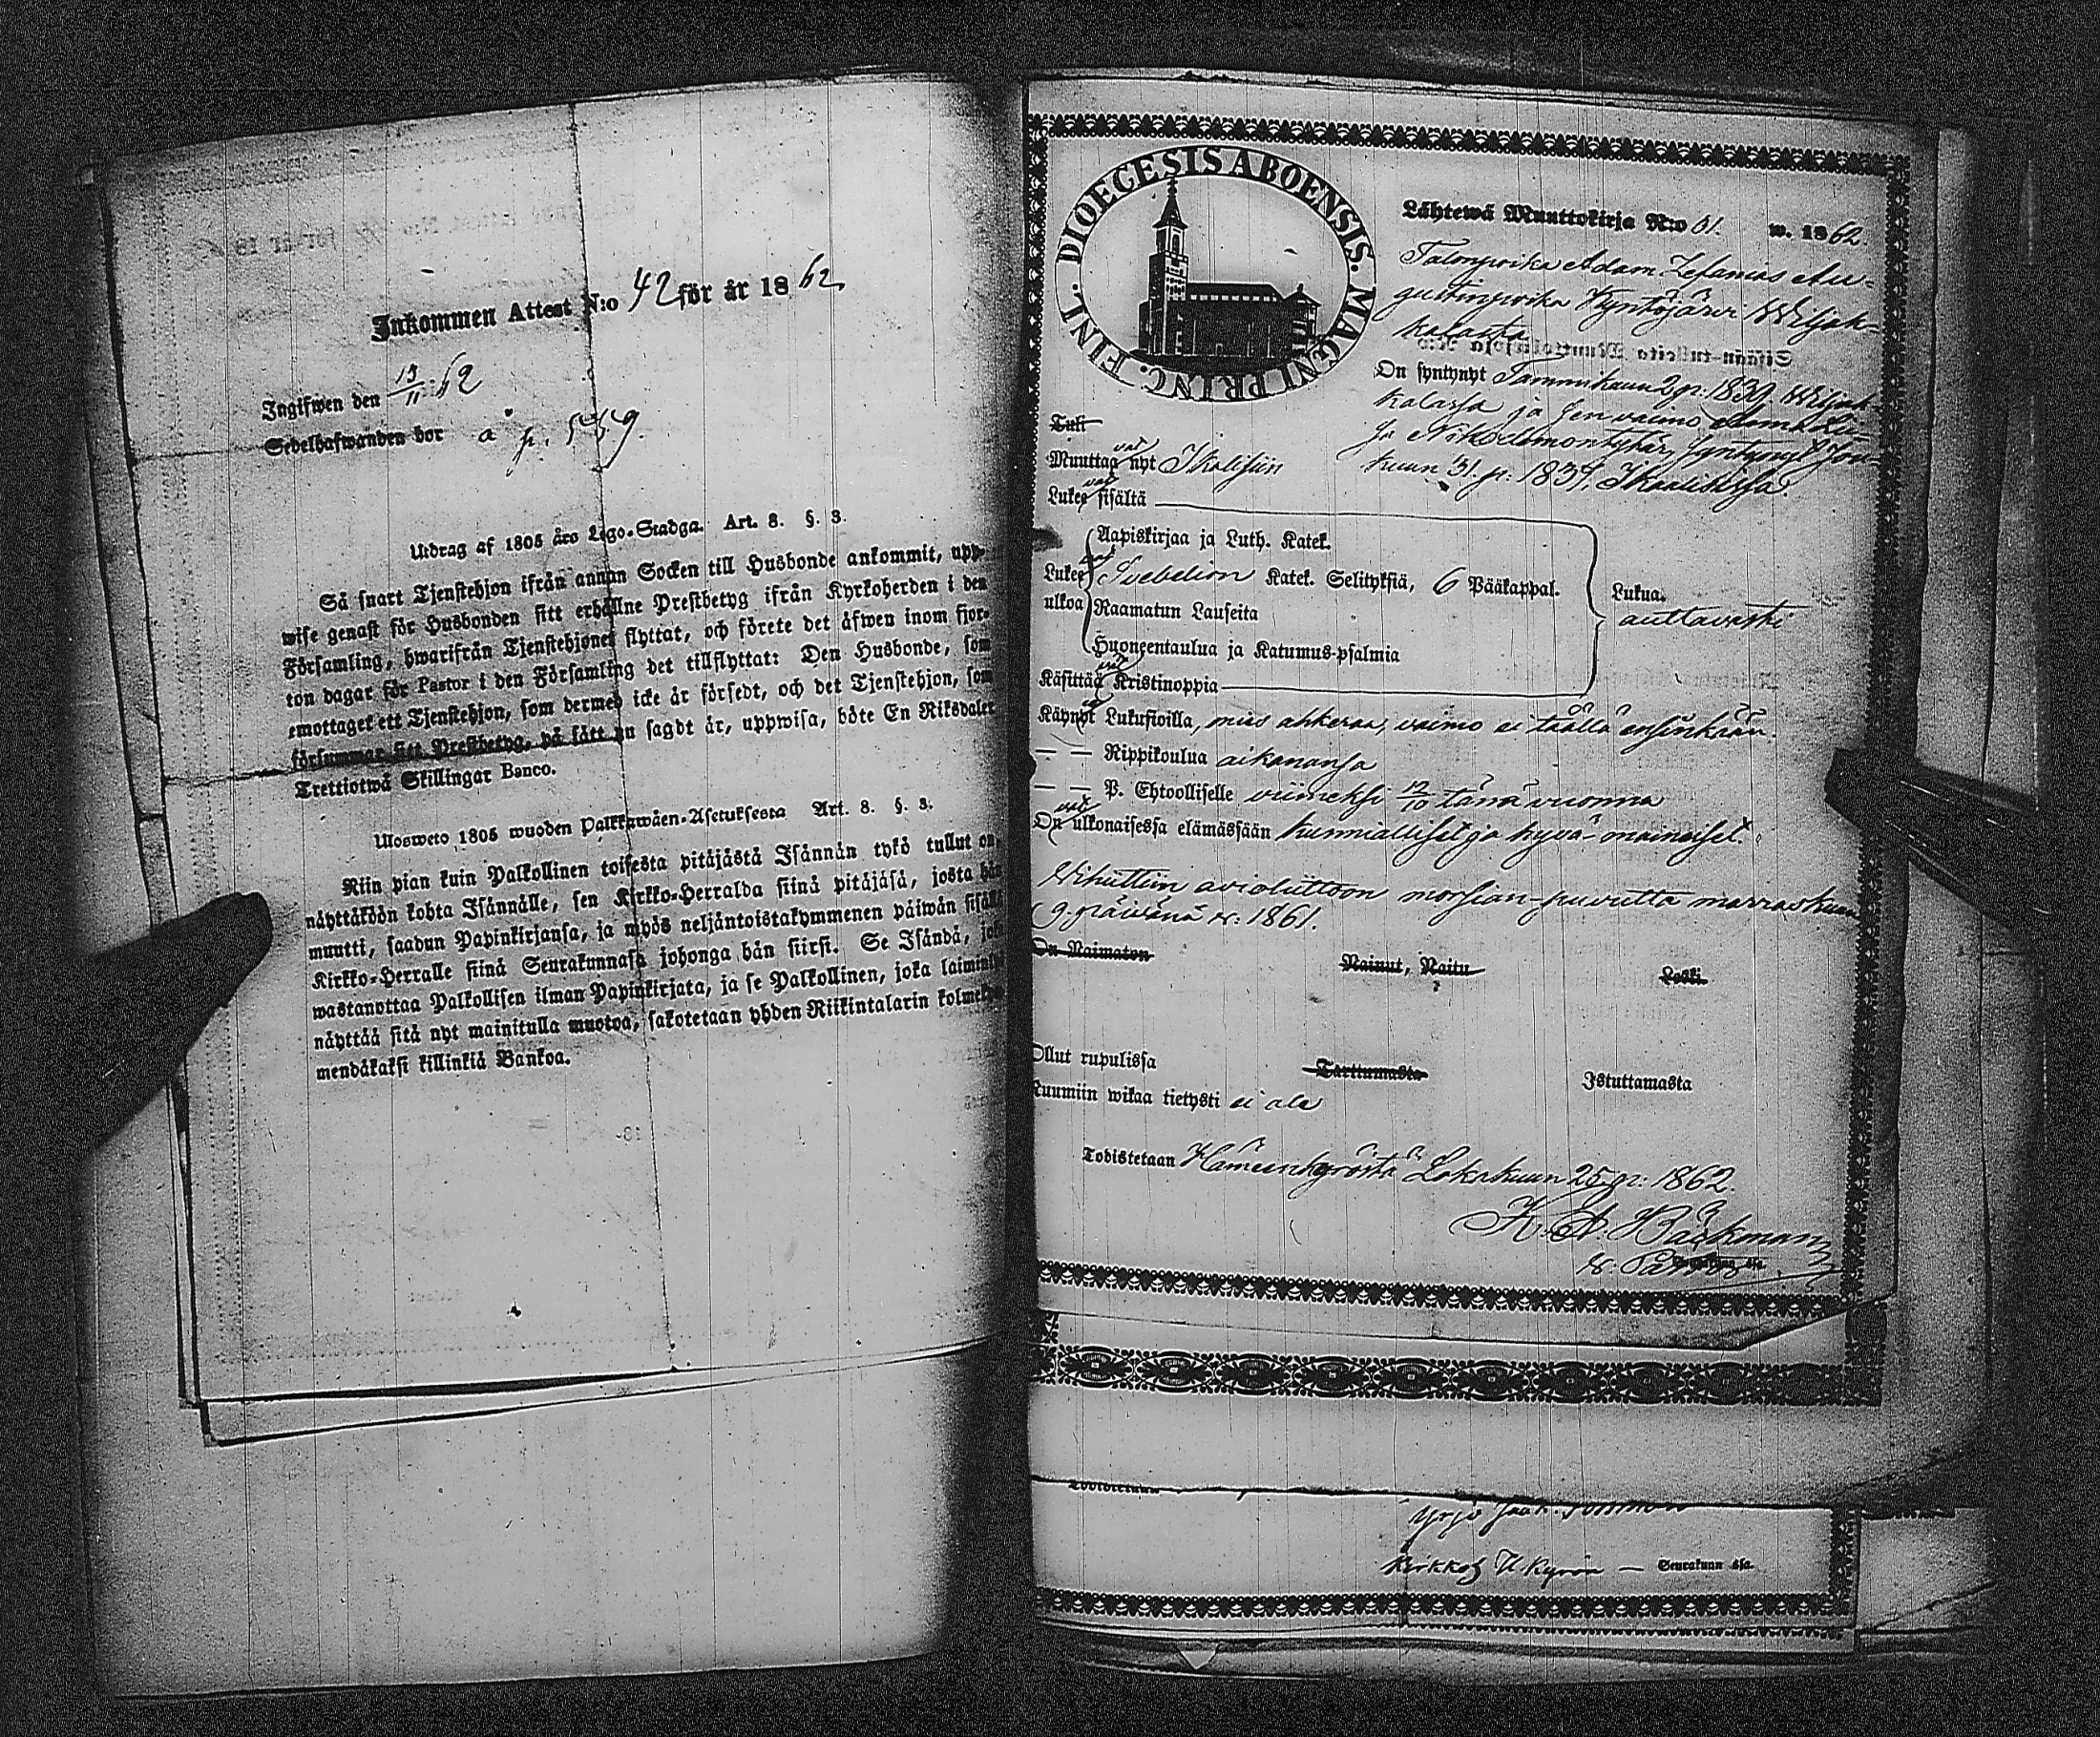 Inkommen Attest N:o 42 för år 1862
Ingifwen den 13/11 62
Sedelhafwanden bor å p. 539.
Utdrag af 1805 års Lego-Stadga. Art. 8. §. 3.
Så snart Tjenstehjon ifrån annan Socken till Husbonde ankommit, upp-
wise genast för Husbonden sitt erhållne Prestbetyg ifrån Kyrkoherden i den
Församling, hwarifrån Tjenstehjonet flyttat, och förete det äfwen inom fjor-
ton dagar för Pastor i den Församling det tillflyttat: Den Husbonde, som
emottaget ett Tjenstehjon, som dermed icke är försedt, och det Tjenstehjon, som
försummar sitt Prestbetyg, på sätt nu sagdt är, uppwisa, böte En Riksdaler
Trettiotwå Skillingar Banco.
Ulosweto 1805 wuoden Palkkawäen-Asetuksesta Art. 8. §. 3.
Niin pian kuin Palkollinen toisesta pitäjästä Isännän tykö tullut on,
näyttäköön kohta Isännälle, sen Kirkko-Herralda siinä pitäjäsä, josta hän
muutti, saadun Papinkirjansa, ja myös neljäntoistakymmenen päiwän sisällä
Kirkko-Herralle siinä Seurakunnasa johonga hän siirsi. Se Isändä, joka
wastanottaa Palkollisen ilman Papinkirjata, ja se Palkollinen, joka laiminlyö
näyttää sitä nyt mainitulla muotoa, sakotetaan yhden Riikintalarin kolmekym-
mendäkaksi killinkiä Bankoa.
DIOECESIS ABOENSIS. MAGNI PRINC. FINL.
Lähtewä Muuttokirja N:o 61. w. 1862.
Talonpoika Adam Zefanias Au-
gustinpoika Kyntöjärvi Wiljak-
kalasta
On syntynyt Tammikuun 2 p: 1839 Wiljak-
kalassa ja sen vaimo Anna Lii-
sa Nikodemontytär, syntynyt Jou-
kuun 31. p: 1837, Ikaalisissa.
Tuli
Muuttaa vat nyt Ikalisiin
Lukee vat sisältä
Aapiskirjaa ja Luth. Katek.
Lukee vat ulkoa Svebelion Katek. Selityksiä, 6 Pääkappal.
Raamatun Lauseita
Huoneentaulua ja Katumus-psalmia
Lukua.
auttavasti
Käsittää vat Kristinoppia
Käynyt Lukusioilla, mies ahkeraan, vaimo ei täällä ensinkään.
— — Rippikoulua aikanansa
— — P. Ehtoolliselle viimeksi 12/10 tänä vuonna
On vat ulkonaisessa elämässään kunnialliset ja hyvä-maineiset.
Vihittiin avioliittoon morsian-puvutta marraskuun
9. päivänä v: 1861.
On Naimaton Nainut, Naitu Leski.
Ollut rupulissa Tarttumasta Istuttamasta
Ruumiin wikaa tietysti ei ole
Todistetaan Hämeenkyröstä Lokakuun 25 p: 1862.
K. A. Bäckman
v. Pastor
Kirkkoh H Kyrön — Seurakun ssa.